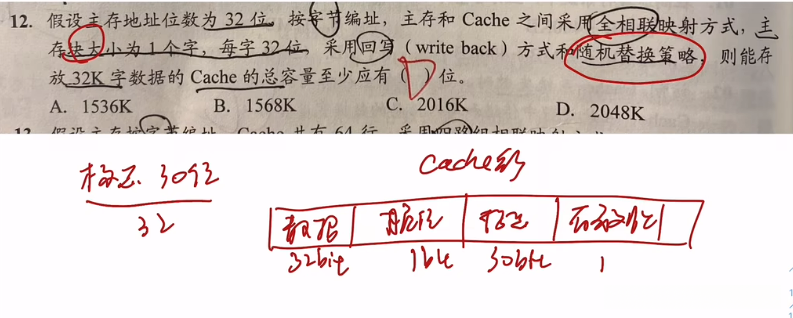 12. 假设主存地址位数为 32 位，按字节编址，主存和 Cache 之间采用全相联映射方式，主
存块大小为 1 个字，每字 32 位，采用回写（write back）方式和随机替换策略，则能存
放 32K 字数据的 Cache 的总容量至少应有（ ）位。
A. 1536K B. 1568K C. 2016K D. 2048K
Cache行
标记 30位
32
数据 脏位 标记 有效位
32bit 1bit 30bit 1